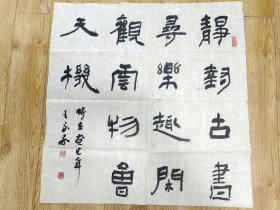 靜對古書
尋樂趣閑
觀雲物會
天機
時在癸巳年
王永